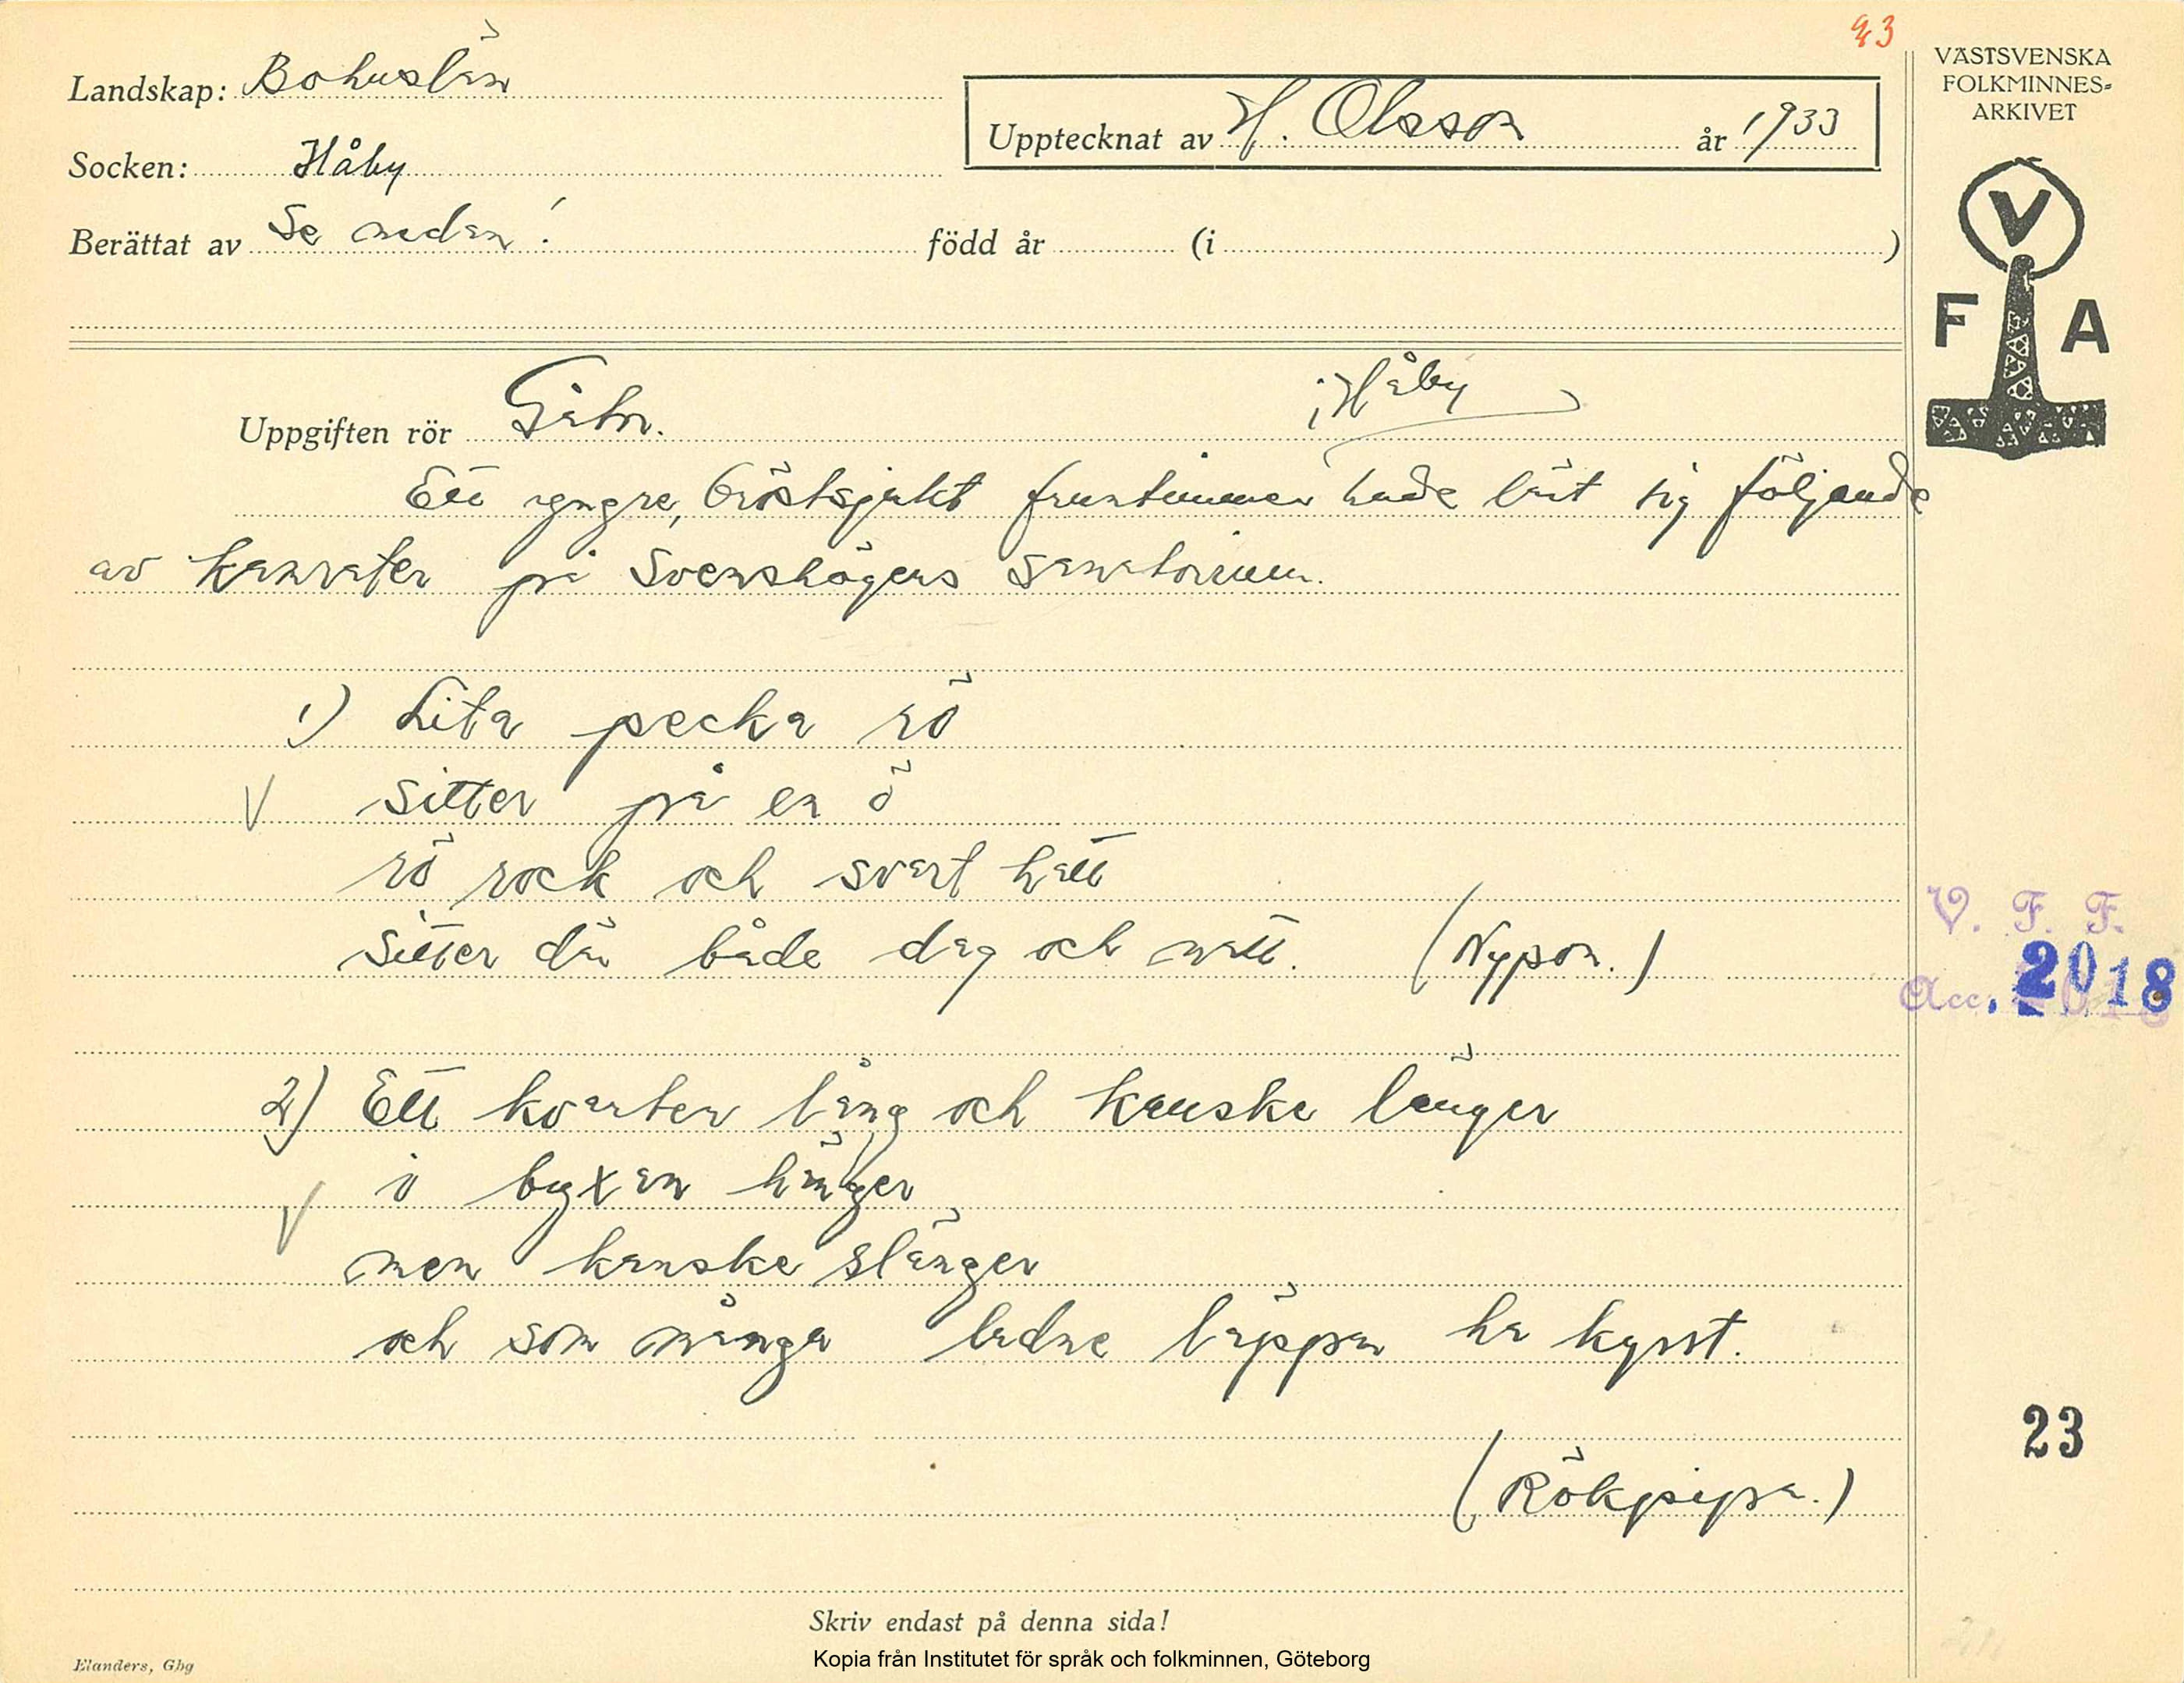 23
VÄSTSVENSKA
FOLKMINNES-
ARKIVET
Landskap: Bohuslän
Upptecknat av H. Olsson år 1933
Socken: Håby
Berättat av Se nedan! född år (i )
V
F A
Uppgiften rör Gåtor.
i Håby
Ett yngre, bröstsjukt fruntimmer hade lärt sig följande
av kamrater på Svenshögens sanatorium.
1) Lita pecka rö
sitter på en ö
rö rock och svart hatt
sitter där både dag och natt. (Nypon.)
V. F. F.
Acc. 2018
2) Ett kvarter lång och kanske länger
i byxan hänger
men kanske slänger
och som många ladne läppar ha kysst.
23
(Rökpipa.)
Skriv endast på denna sida!
Kopia från Institutet för språk och folkminnen, Göteborg
Elanders, Gbg